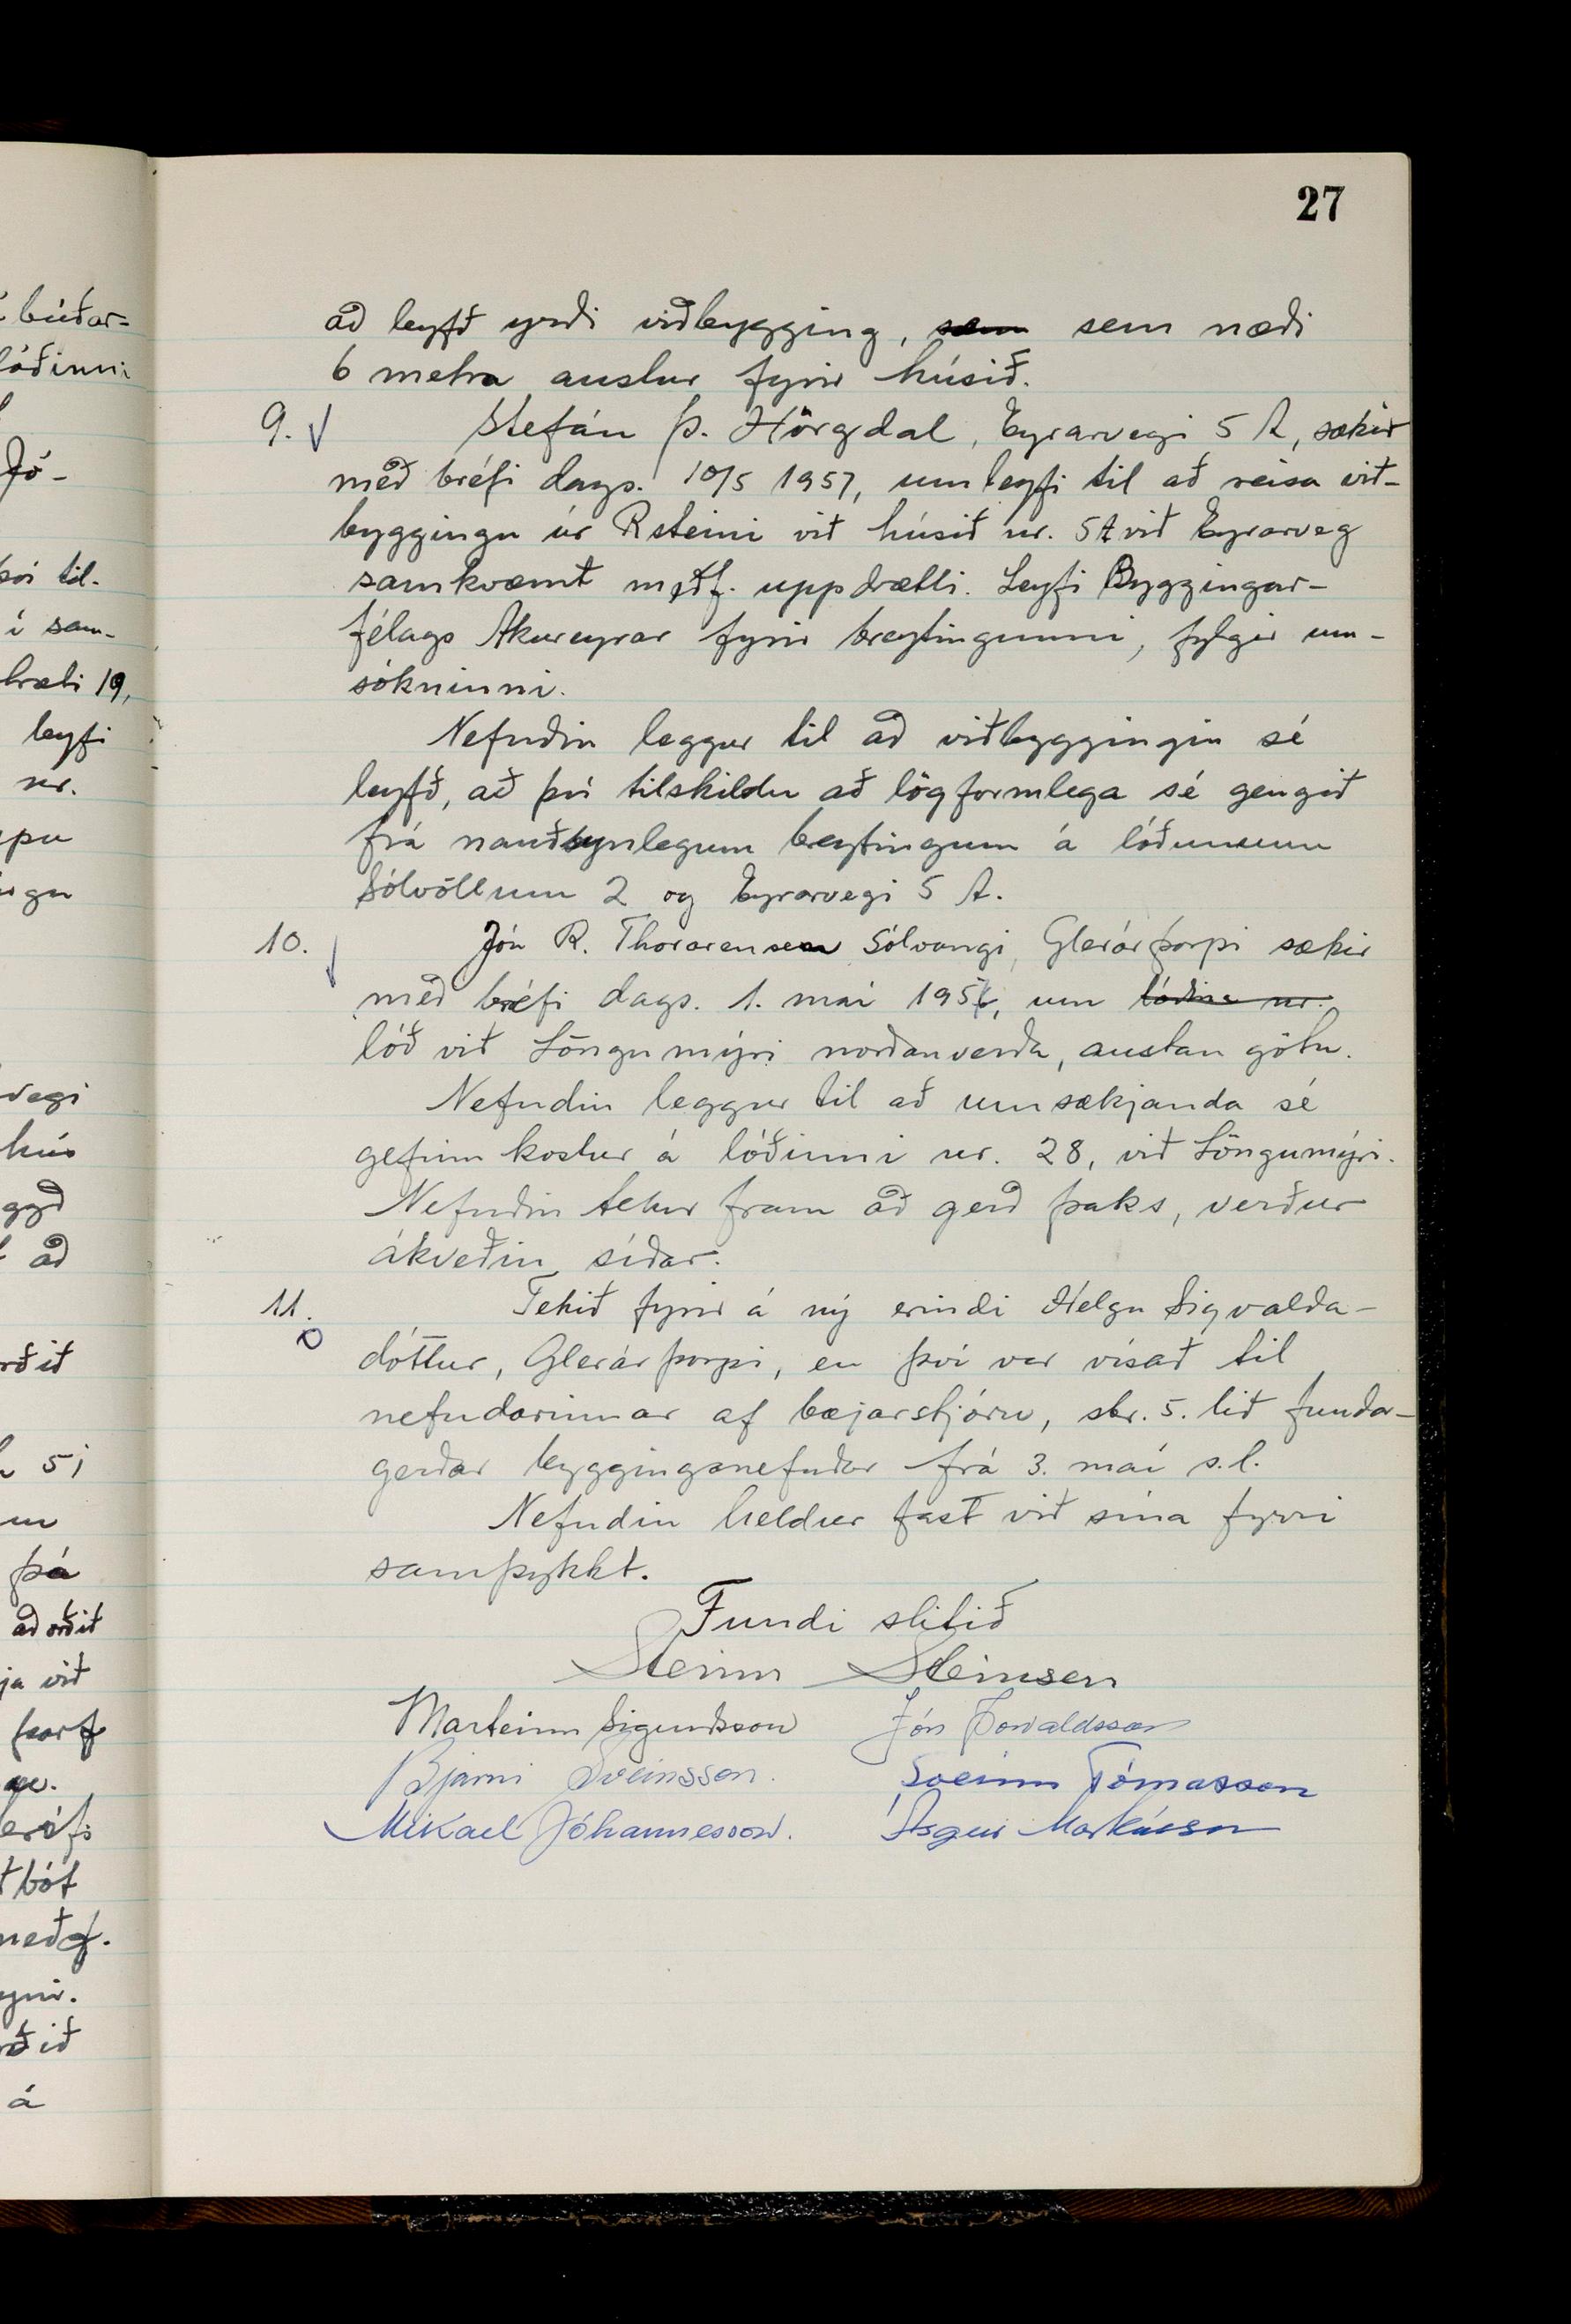 27
að leyfð yrði viðbygging, sem sem næði
6 metra austur fyrir húsið.
9. Stefán Þ. Hörgdal, Eyrarvegi 5 A, sækir
með bréfi dags. 10/5 1957, um leyfi til að reisa við-
byggingu úr R steini við húsið nr. 5A við Eyrarveg
samkvæmt mðf. uppdrætti. Leyfi Byggingar-
félags Akureyrar fyrir breytingunni, fylgir um-
sókninni.
Nefndin leggur til að viðbyggingin sé
leyfð, að því tilskildu að lögformlega sé gengið
frá nauðsynlegum breytingum á lóðunum
Sólvöllum 2 og Eyrarvegi 5 A.
10. Jón R. Thorarensen Sólvangi, Glerárþorpi sækir
með bréfi dags. 1. maí 195, um lóðina nr.
lóð við Löngumýri norðanverða, austan götu.
Nefndin leggur til að umsækjanda sé
gefinn kostur á lóðinni nr. 28, við Löngumýri.
Nefndin tekur fram að gerð þaks, verður
ákveðin síðar.
11. Tekið fyrir á ný erindi Helgu Sigvalda-
dóttur, Glerárþorpi, en því var vísað til
nefndarinnar af bæjarstjórn, sbr. 5. lið funda-
gerðar bygginganefndar frá 3. maí s.l.
Nefndin heldur fast við sína fyrri
samþykkt.
Fundi slitið
Steinn Steinsen
Marteinn Sigurðsson Jón Þorvaldsson
Bjarni Sveinsson. Sveinn Tómasson
Mikael Jóhannesson. Ásgeir Markússon
búðar-
lóðinni
Jó-
því til.
í sam-
træti 19,
leyfi
nr.
vegi
hús
að
5 i
þá
að orðið
ja við
þarf
bót
meðf.
á